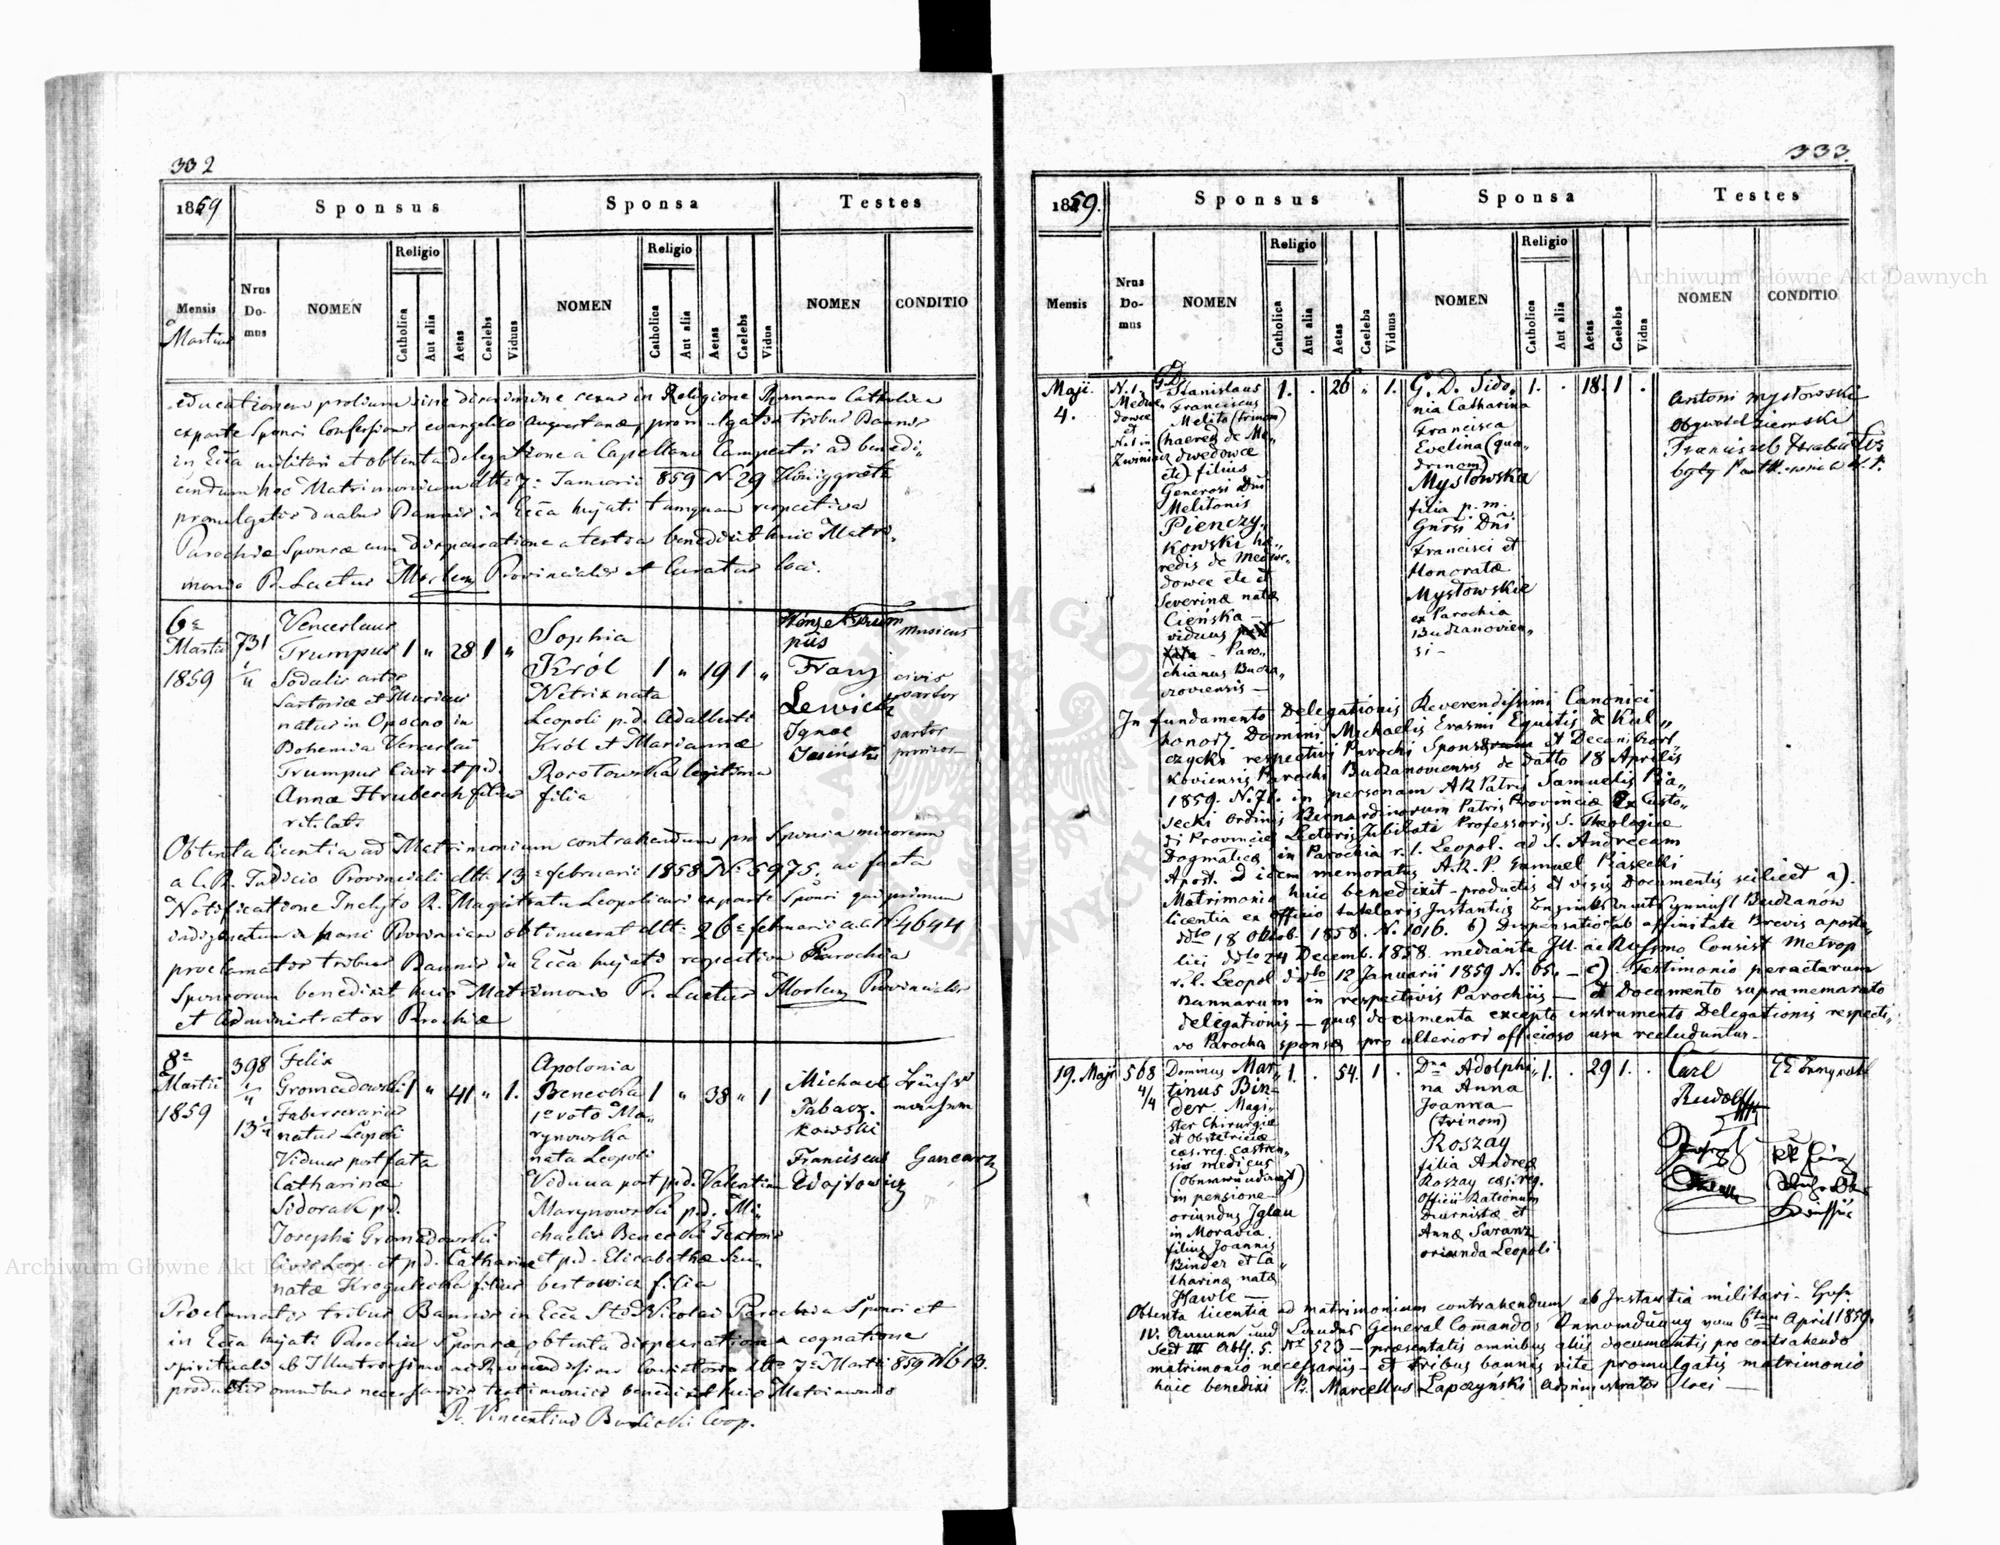 332
1859
Sponsus
Sponsa
Testes
Mensis
Martius
Nrus Do-mus
NOMEN
Religio
Catholica
Aut alia
Aetas
Caelebs
Viduus
NOMEN
Religio
Catholica
Aut alia
Aetas
Caelebs
Vidua
NOMEN
CONDITIO
educationem prolium sine discrimine sexus in Religione Romano Catholica
ex parte Sponsi Confessionis evangelico Augustanae, promulgatis tribus Bannis
in Ecca militari et obtenta delegatione a Capellano Campestri ad benedi-
cendum hoc Matrimonium dtto 7a Januarii 859 N. 29 Königgrätz
promulgatis duabus Bannis in Ecca hujati tamquam respectiva
Parochia Sponsae cum dispensatione a tertia benedixit huic Matri-
monio P. Laetus Provincialis et Curatus loci.
6a
Martii
1859
731
Venceslaus
Trumpus
Sodalis artis
Sartoriae et Musicus
natus in Opocno in
Bohemia Venceslai
Trumpus Civis et p.d.
Annae Hrubesch filius
1 " 28 1 "
Sophia
Król
Netrix nata
Leopoli p.d. Adalberti
Król et Mariannae
legitima
filia
1 " 19 1 "
musicus
Franz
Lewicki
civis
sartor
Ignac
Jasiński
sartor
Obtenta licentia ad Matrimonium contrahendum pro Sponsa minorem
a C.R. Judicio Provinciali dtto 13a februarii 1858 No 5975. ac facta
Notificatione Inclyto R. Magistratu Leopoliensi ex parte Sponsi qui primum
indigenatum in hanc Provinciam obtinuerat dtto 26a februarii a.c. N. 4644
proclamatos tribus Bannis in Ecca hujati respectiva Parochia
Sponsorum benedixit huic Matrimonio P. Laetus Provincialis
et Administrator Parochiae
8a
Martii
1859
398
13
Felix
Gromadowski
natus Leopoli
Viduus post fata
Catharinae
Sidorak p.d.
Josephi Gromadowski
Civis Leop. et p.d. Catharinae
natae filius
1 " 41 " 1.
Apolonia
Benecka
1o voto Ma-
rynowska
nata Leopoli
Vidua post p.d. Valentin
Marynowski p.d. Mi-
chaelis Benecki Textoris
et p.d. Elisabethae
filia
1 " 38 " 1
Michael
Tabacz-
kowski
Franciscus
Wojtowicz
Gancarz
Proclamatos tribus Bannis in Ecca Sti Nicolai Parochia Sponsi et
in Ecca hujati Parochia Sponsae obtenta dispensatione a cognatione
spirituali ab Illustrissimo ac Reverendissimo Consistorio dtto 7a Martii 859 N 613.
productis omnibus necessariis testimoniis benedixit huic Matrimonio
P. Vincentius Coop.
333.
1859.
Sponsus
Sponsa
Testes
Mensis
Nrus Do-mus
NOMEN
Religio
Catholica
Aut alia
Aetas
Caelebs
Viduus
NOMEN
Religio
Catholica
Aut alia
Aetas
Caelebs
Vidua
NOMEN
CONDITIO
Maji.
4.
N. 1
Medwe-
dowce
et
N. 1 in
Zwiniacz
G. D.
Stanislaus
Franciscus
Melito (trinom)
(haeres de Me-
dwedowce
etc) filius
Generosi Dni
Melitonis
Pienczy-
kowski hae-
redis de Medwe-
dowce etc et
Severinae natae
Cieńska -
viduus
Paro-
chianus Budza-
noviensis -
1. . 26 " 1.
G. D. Sido-
nia Catharina
Francisca
Evelina (qua-
drinom)
Mysłowska
filia p. m.
Gnosi Dni
Francisci et
Honoratae
Mysłowskie
ex Parochia
Budzanovien-
si -
1. . 18. 1 .
Antoni Mysłowski
Obywatel ziemski
Franciszek
In fundamento Delegationis Reverendissimi Canonici
honor. Domini Michaelis Erasmi Equitis de Kul-
czycki respectivi Parochi Sponsorum et Decani
Parochi Budzanoviensis de datto 18 Aprilis
1859. N. 71. in personam AR Patris Samuelis Pia-
secki Ordinis Bernardinorum Patris Provinciae Ex Custo-
di Provinciae Lectoris Jubilati Professoris S. Theologiae
Dogmaticae in Parochia r. l. Leopol. ad S. Andream
Apost. idem memoratus A.R.P. Samuel Piasecki
Matrimonio huic benedixit - productis et visis Documentis scilicet a).
licentia ex officio tutelaris Instantiis Budzanów
ddto 18 Oktob. 1858. N. 1016. b) Dispensatio ab affinitate Brevis aposto-
lici ddto 24 Decemb. 1858. mediante Ill. ac Rssimo Consist Metrop
r. l. Leopol ddto 12 Januarii 1859 N. 65. - c). Testimonio peractarum
Bannarum in respectivis Parochiis - et Documento supramemorato
delegationis - quae documenta excepto instrumento Delegationis respecti-
vo Parocho sponsae pro ulteriori officioso usu recluduntur.
19. Maji
568
4/4
Dominus Mar-
tinus Bin-
der Magi-
ster Chirurgiae
et Obstetriciae
caes. reg. castren-
sis medicus
in pensione
oriundus Iglau
in Moravia.
filius Joannis
Binder et Ca-
tharinae natae
Hawle -
1. . 54. 1 .
Dna Adolphi-
na Anna
Joanna
(trinom)
Roszay
filia Andreae
Roszay caes. reg.
Officii Rationum
Diurnistae et
Annae Saranz
oriunda Leopoli
1. . 29 1. .
Carl
Rudolf
Obtenta licentia ad matrimonium contrahendum ab Instantia militari
und Landes General Comando Verwendung vom 6ten April 1859.
Sect III Abth. 5. Nr 523 - praesentatis omnibus aliis documentis pro contrahendo
matrimonio necessariis - et tribus bannis rite promulgatis matrimonio
huic benedixi P. Marcellus Łapczyński Administrator loci -
Archiwum Główne Akt Dawnych
Archiwum Główne Akt Dawnych
ARCHIWUM GŁÓWNE AKT DAWNYCH